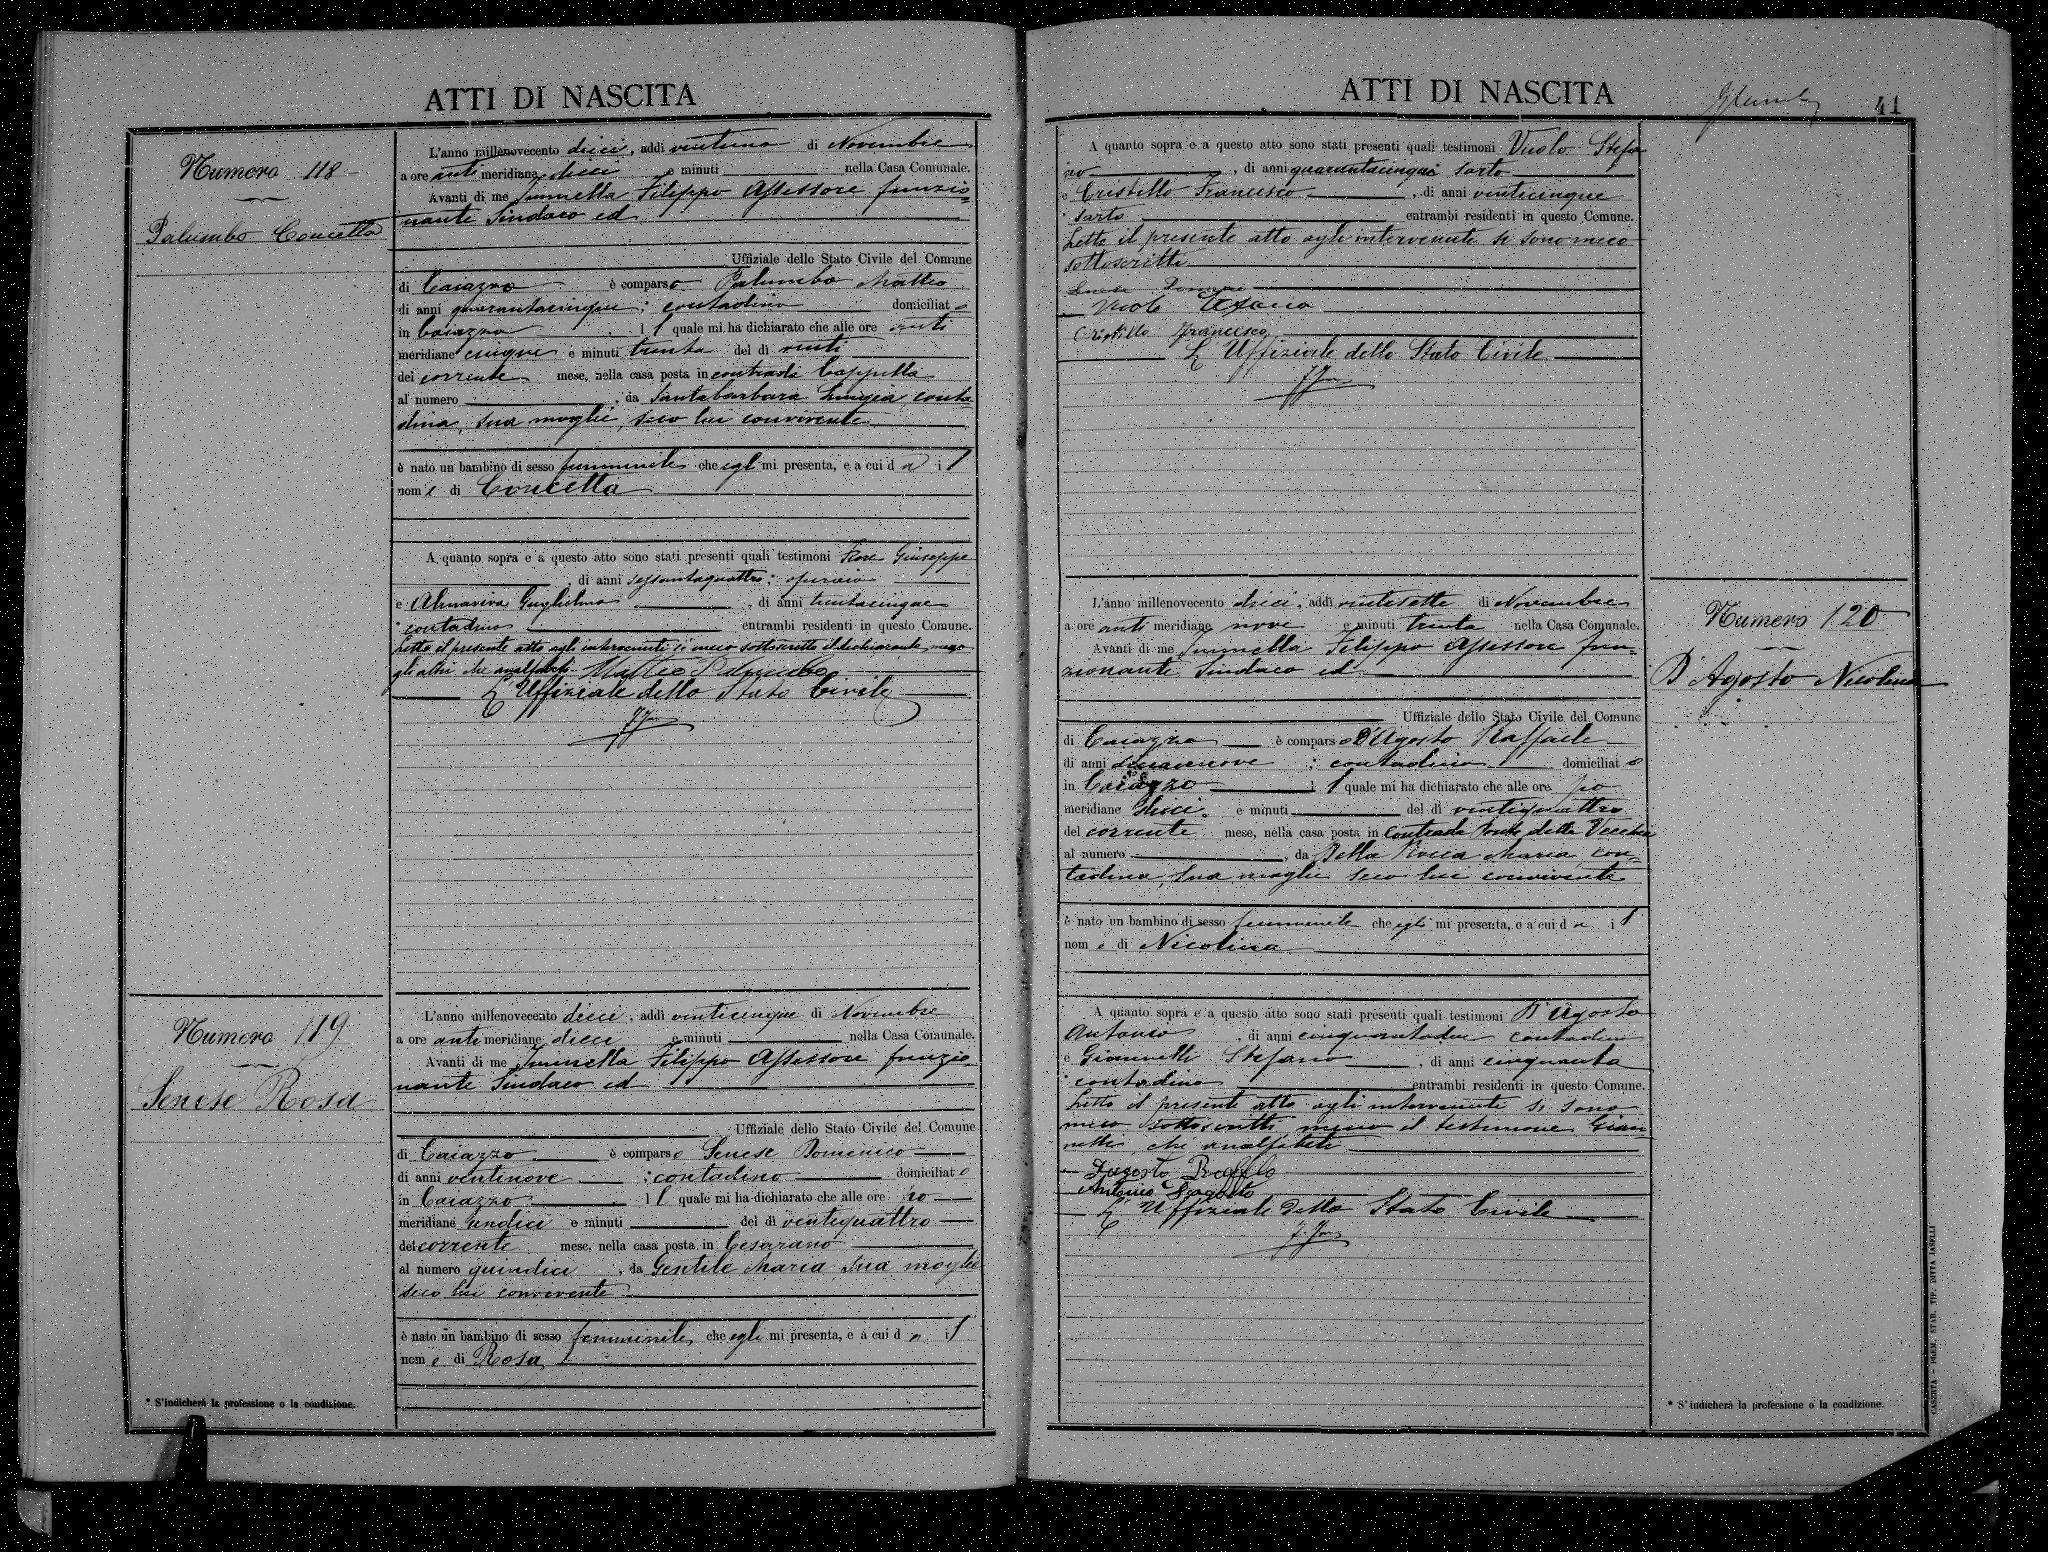 ATTI DI NASCITA
Numero 118
Palumbo Concetta
L'anno millenovecento dieci, addì ventuno di Novembre
a ore anti meridiane dieci e minuti nella Casa Comunale.
Avanti di me Filippo Assessore funzio=
nante Sindaco ed
Uffiziale dello Stato Civile del Comune
di Caiazzo è comparso Palumbo Matteo
di anni quarantacinque; contadino domiciliato
in Caiazzo il quale mi ha dichiarato che alle ore anti
meridiane cinque e minuti trenta del dì venti
del corrente mese, nella casa posta in contrada Cappella
al numero , da Santabarbara Luigia conta
dina, sua moglie, seco lui convivente
è nato un bambino di sesso femminile che egli mi presenta, e a cui dà il
nome di Concetta
A quanto sopra e a questo atto sono stati presenti quali testimoni Fiore Giuseppe
di anni sessantaquattro;
e Almaviva Guglielmo , di anni trentacinque
contadino entrambi residenti in questo Comune.
Letto il presente atto agli intervenuti si è meco sottoscritto il dichiarante, meno
gli altri che analfabeti Matteo Palumbo
L'Uffiziale dello Stato Civile
Numero 119
Senese Rosa
L'anno millenovecento dieci, addì venticinque di Novembre
a ore anti meridiane dieci e minuti nella Casa Comunale.
Avanti di me Filippo Assessore funzio
nante Sindaco ed
Uffiziale dello Stato Civile del Comune
di Caiazzo è comparso Senese Domenico
di anni ventinove ; contadino domiciliato
in Caiazzo il quale mi ha dichiarato che alle ore po
meridiane undici e minuti del dì ventiquattro
del corrente mese, nella casa posta in Cesarano
al numero quindici , da Gentile Maria sua moglie
seco lui convivente
è nato un bambino di sesso femminile che egli mi presenta, e a cui dà il
nome di Rosa
* S'indicherà la professione o la condizione.
ATTI DI NASCITA
41
A quanto sopra e a questo atto sono stati presenti quali testimoni Vuolo Stefa
no , di anni quarantacinque sarto
e Cristillo Francesco , di anni venticinque
sarto entrambi residenti in questo Comune.
Letto il presente atto agli intervenuti si sono meco
sottoscritti
Vuolo Stefano
Cristillo Francesco
L'Uffiziale dello Stato Civile
Numero 120
D'Agosto Nicolina
L'anno millenovecento dieci, addì ventisette di Novembre
a ore anti meridiane nove e minuti trenta nella Casa Comunale.
Avanti di me Filippo Assessore fun=
zionante Sindaco ed
Uffiziale dello Stato Civile del Comune
di Caiazzo è comparso D'Agosto Raffaele
di anni ; contadino domiciliato
in Caiazzo il quale mi ha dichiarato che alle ore po
meridiane dieci e minuti del dì ventiquattro
del corrente mese, nella casa posta in Contrada Ponte della Vecchia
al numero , da Della Rocca Maria con=
tadina, sua moglie seco lui convivente
è nato un bambino di sesso femminile che egli mi presenta, e a cui dà il
nome di Nicolina
A quanto sopra e a questo atto sono stati presenti quali testimoni D'Agosto
Antonio , di anni cinquantadue contadino
e Giannelli Stefano , di anni cinquanta
contadino entrambi residenti in questo Comune.
Letto il presente atto agli intervenuti si sono
meco sottoscritti meno il testimone Gian
nelli che analfabeto
Dagosto Raffele
Antonio Dagosto
L'Uffiziale dello Stato Civile
* S'indicherà la professione o la condizione.